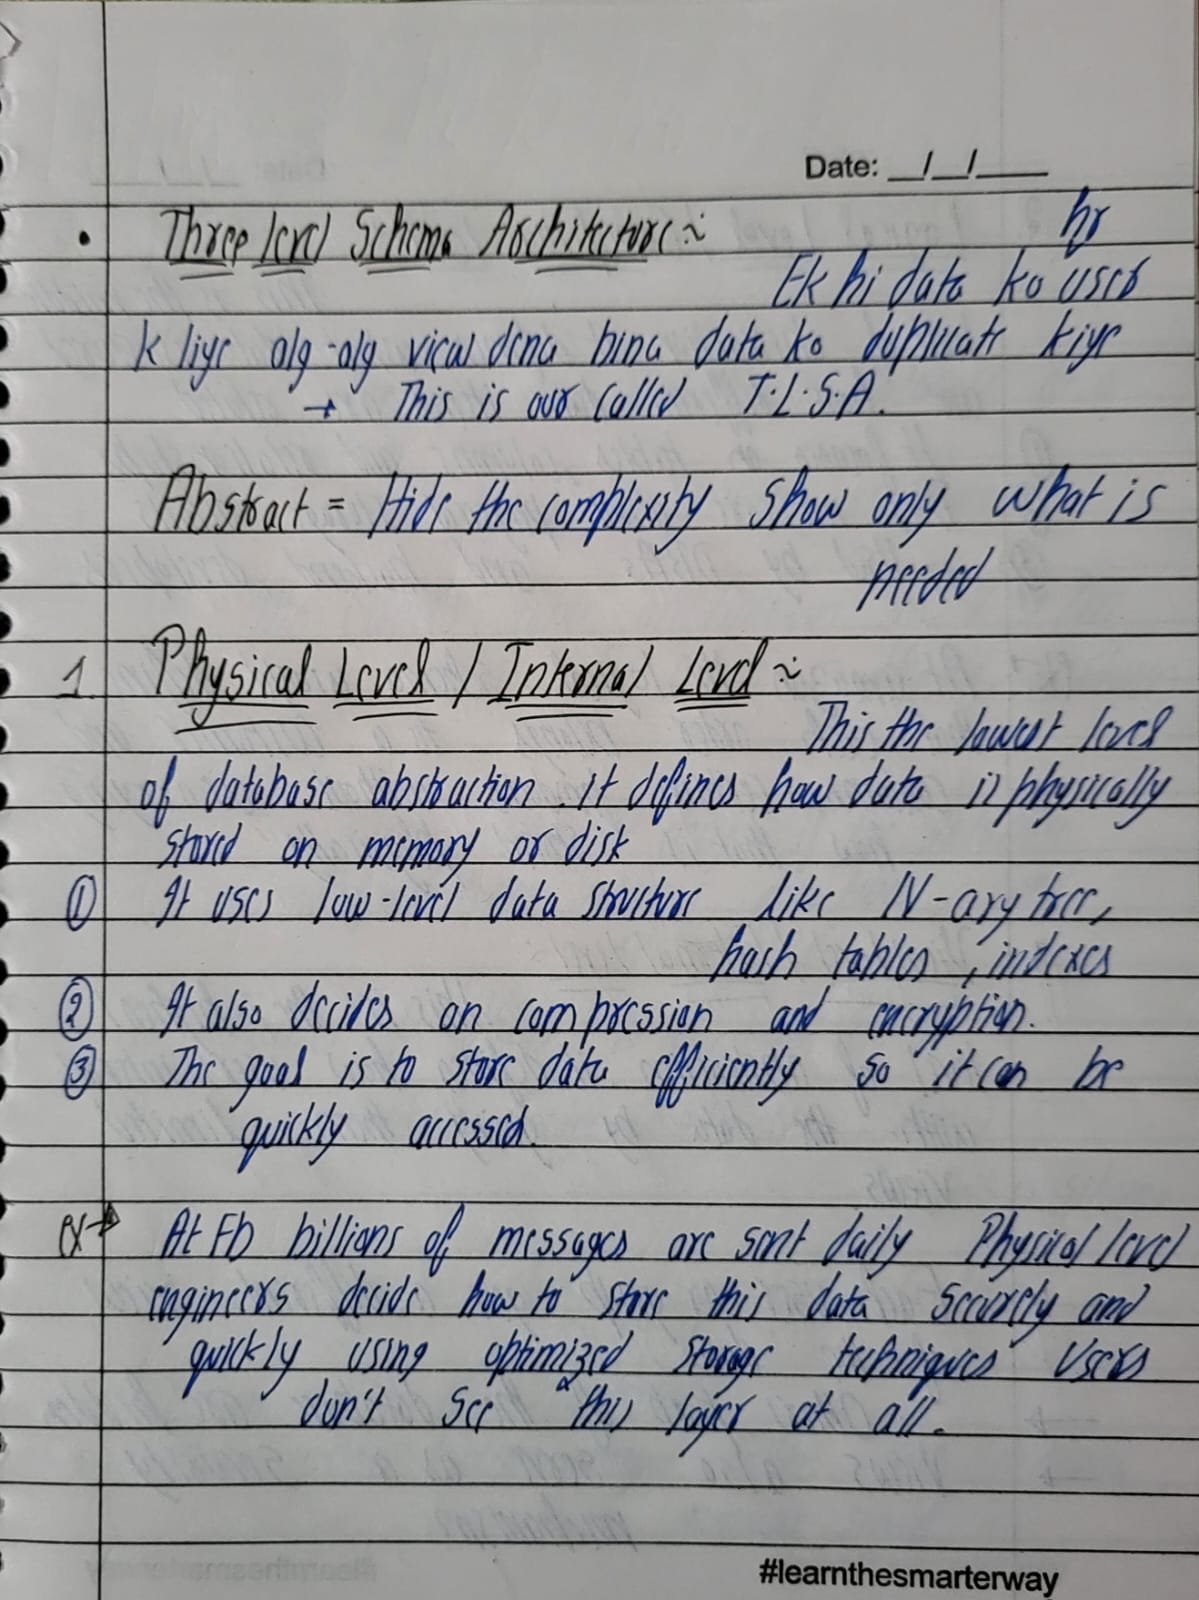 Date: __/__/____
• Three level Schema Architecture :~
hr
Ek hi data ko user
k liye alg-alg view dena bina data ko duplicate kiye
→ This is our called T.L.S.A.
Abstract = Hide the complexity show only what is
needed
1. Physical Level / Internal Level :~
This the lowest level
of database abstraction. it defines how data is physically
stored on memory or disk
① It uses low-level data structure like N-ary tree,
hash tables, indexes
② It also decides on compression and encryption.
③ The goal is to store data efficiently so it can be
quickly accessed.
ex→ At Fb billions of messages are sent daily Physical level
engineers decide how to store this data securely and
quickly using optimized storage techniques" Users
don't see "this layer at all.
#learnthesmarterway